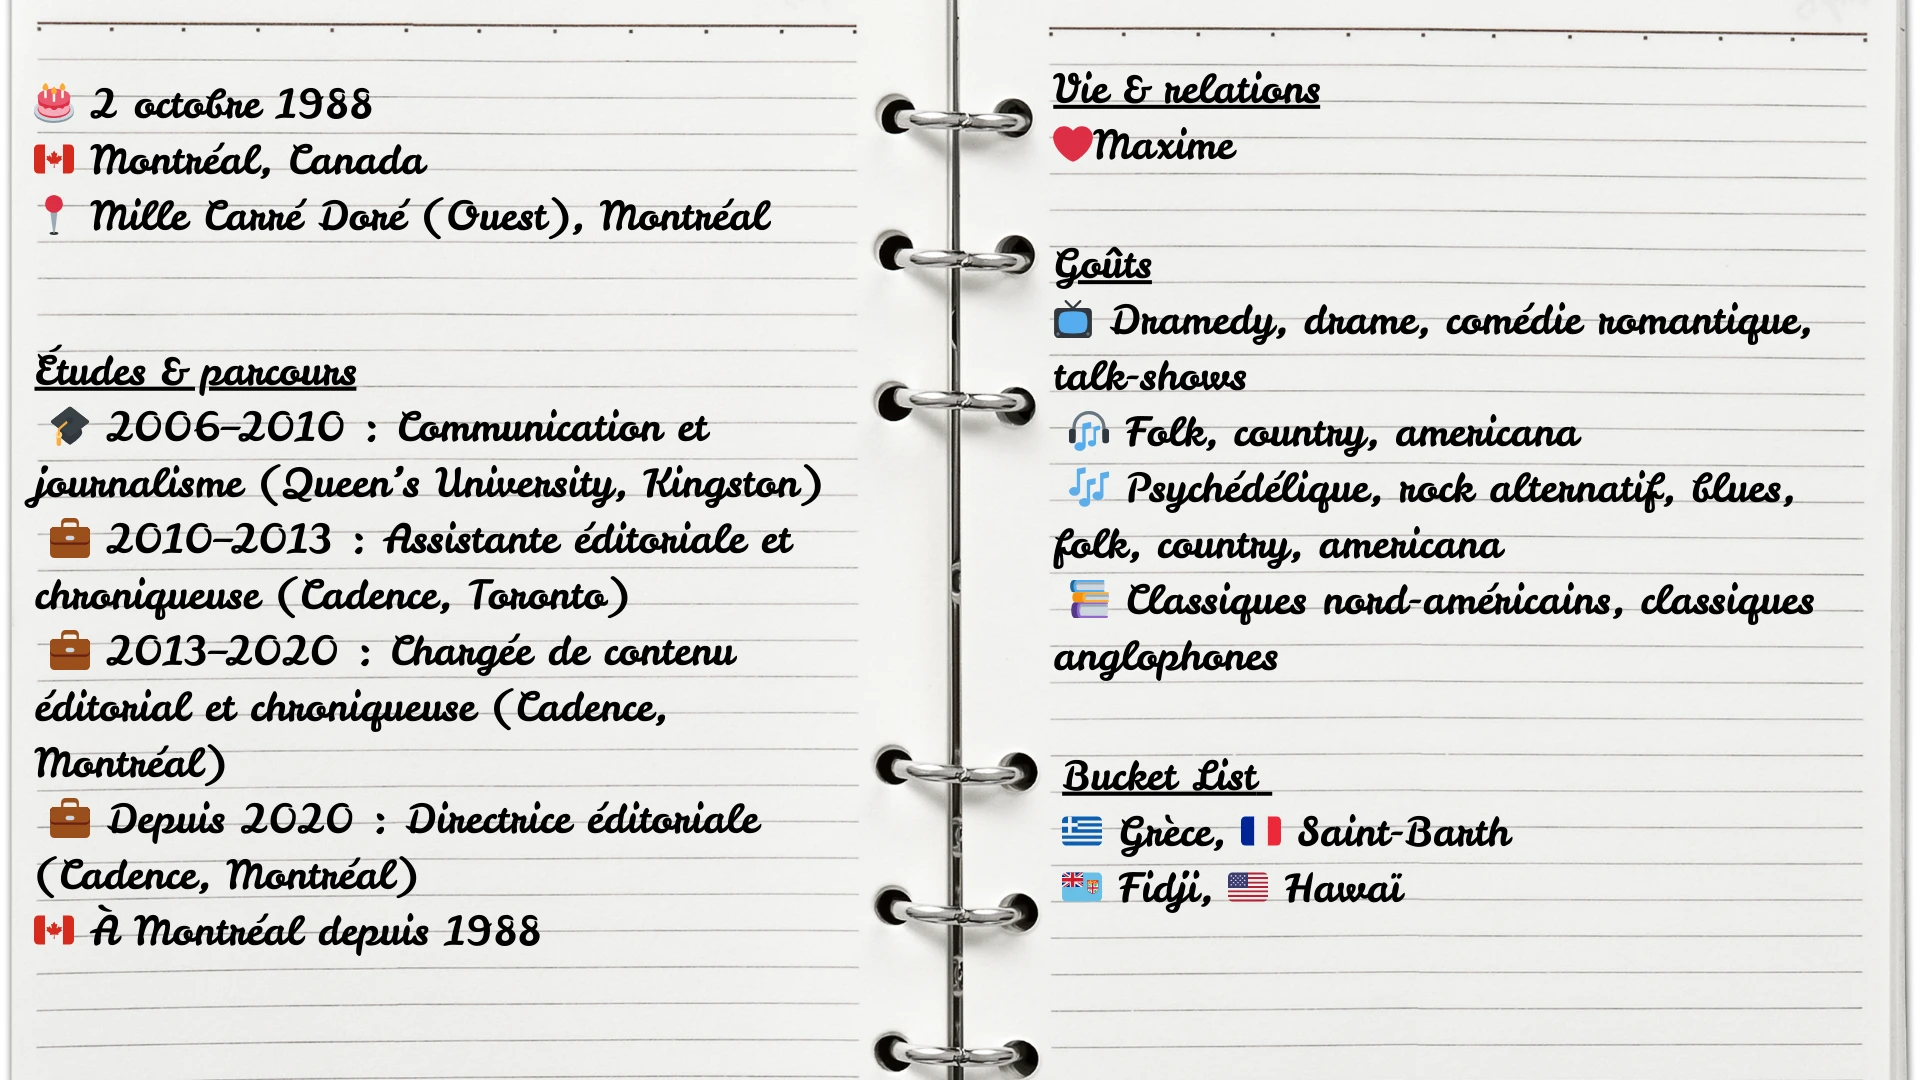 2 octobre 1988
Montréal, Canada
Mille Carré Doré (Ouest), Montréal
Études & parcours
2006–2010 : Communication et
journalisme (Queen's University, Kingston)
2010–2013 : Assistante éditoriale et
chroniqueuse (Cadence, Toronto)
2013–2020 : Chargée de contenu
éditorial et chroniqueuse (Cadence,
Montréal)
Depuis 2020 : Directrice éditoriale
(Cadence, Montréal)
À Montréal depuis 1988
Vie & relations
Maxime
Goûts
Dramedy, drame, comédie romantique,
talk-shows
Folk, country, americana
Psychédélique, rock alternatif, blues,
folk, country, americana
Classiques nord-américains, classiques
anglophones
Bucket List
Grèce, Saint-Barth
Fidji, Hawaï